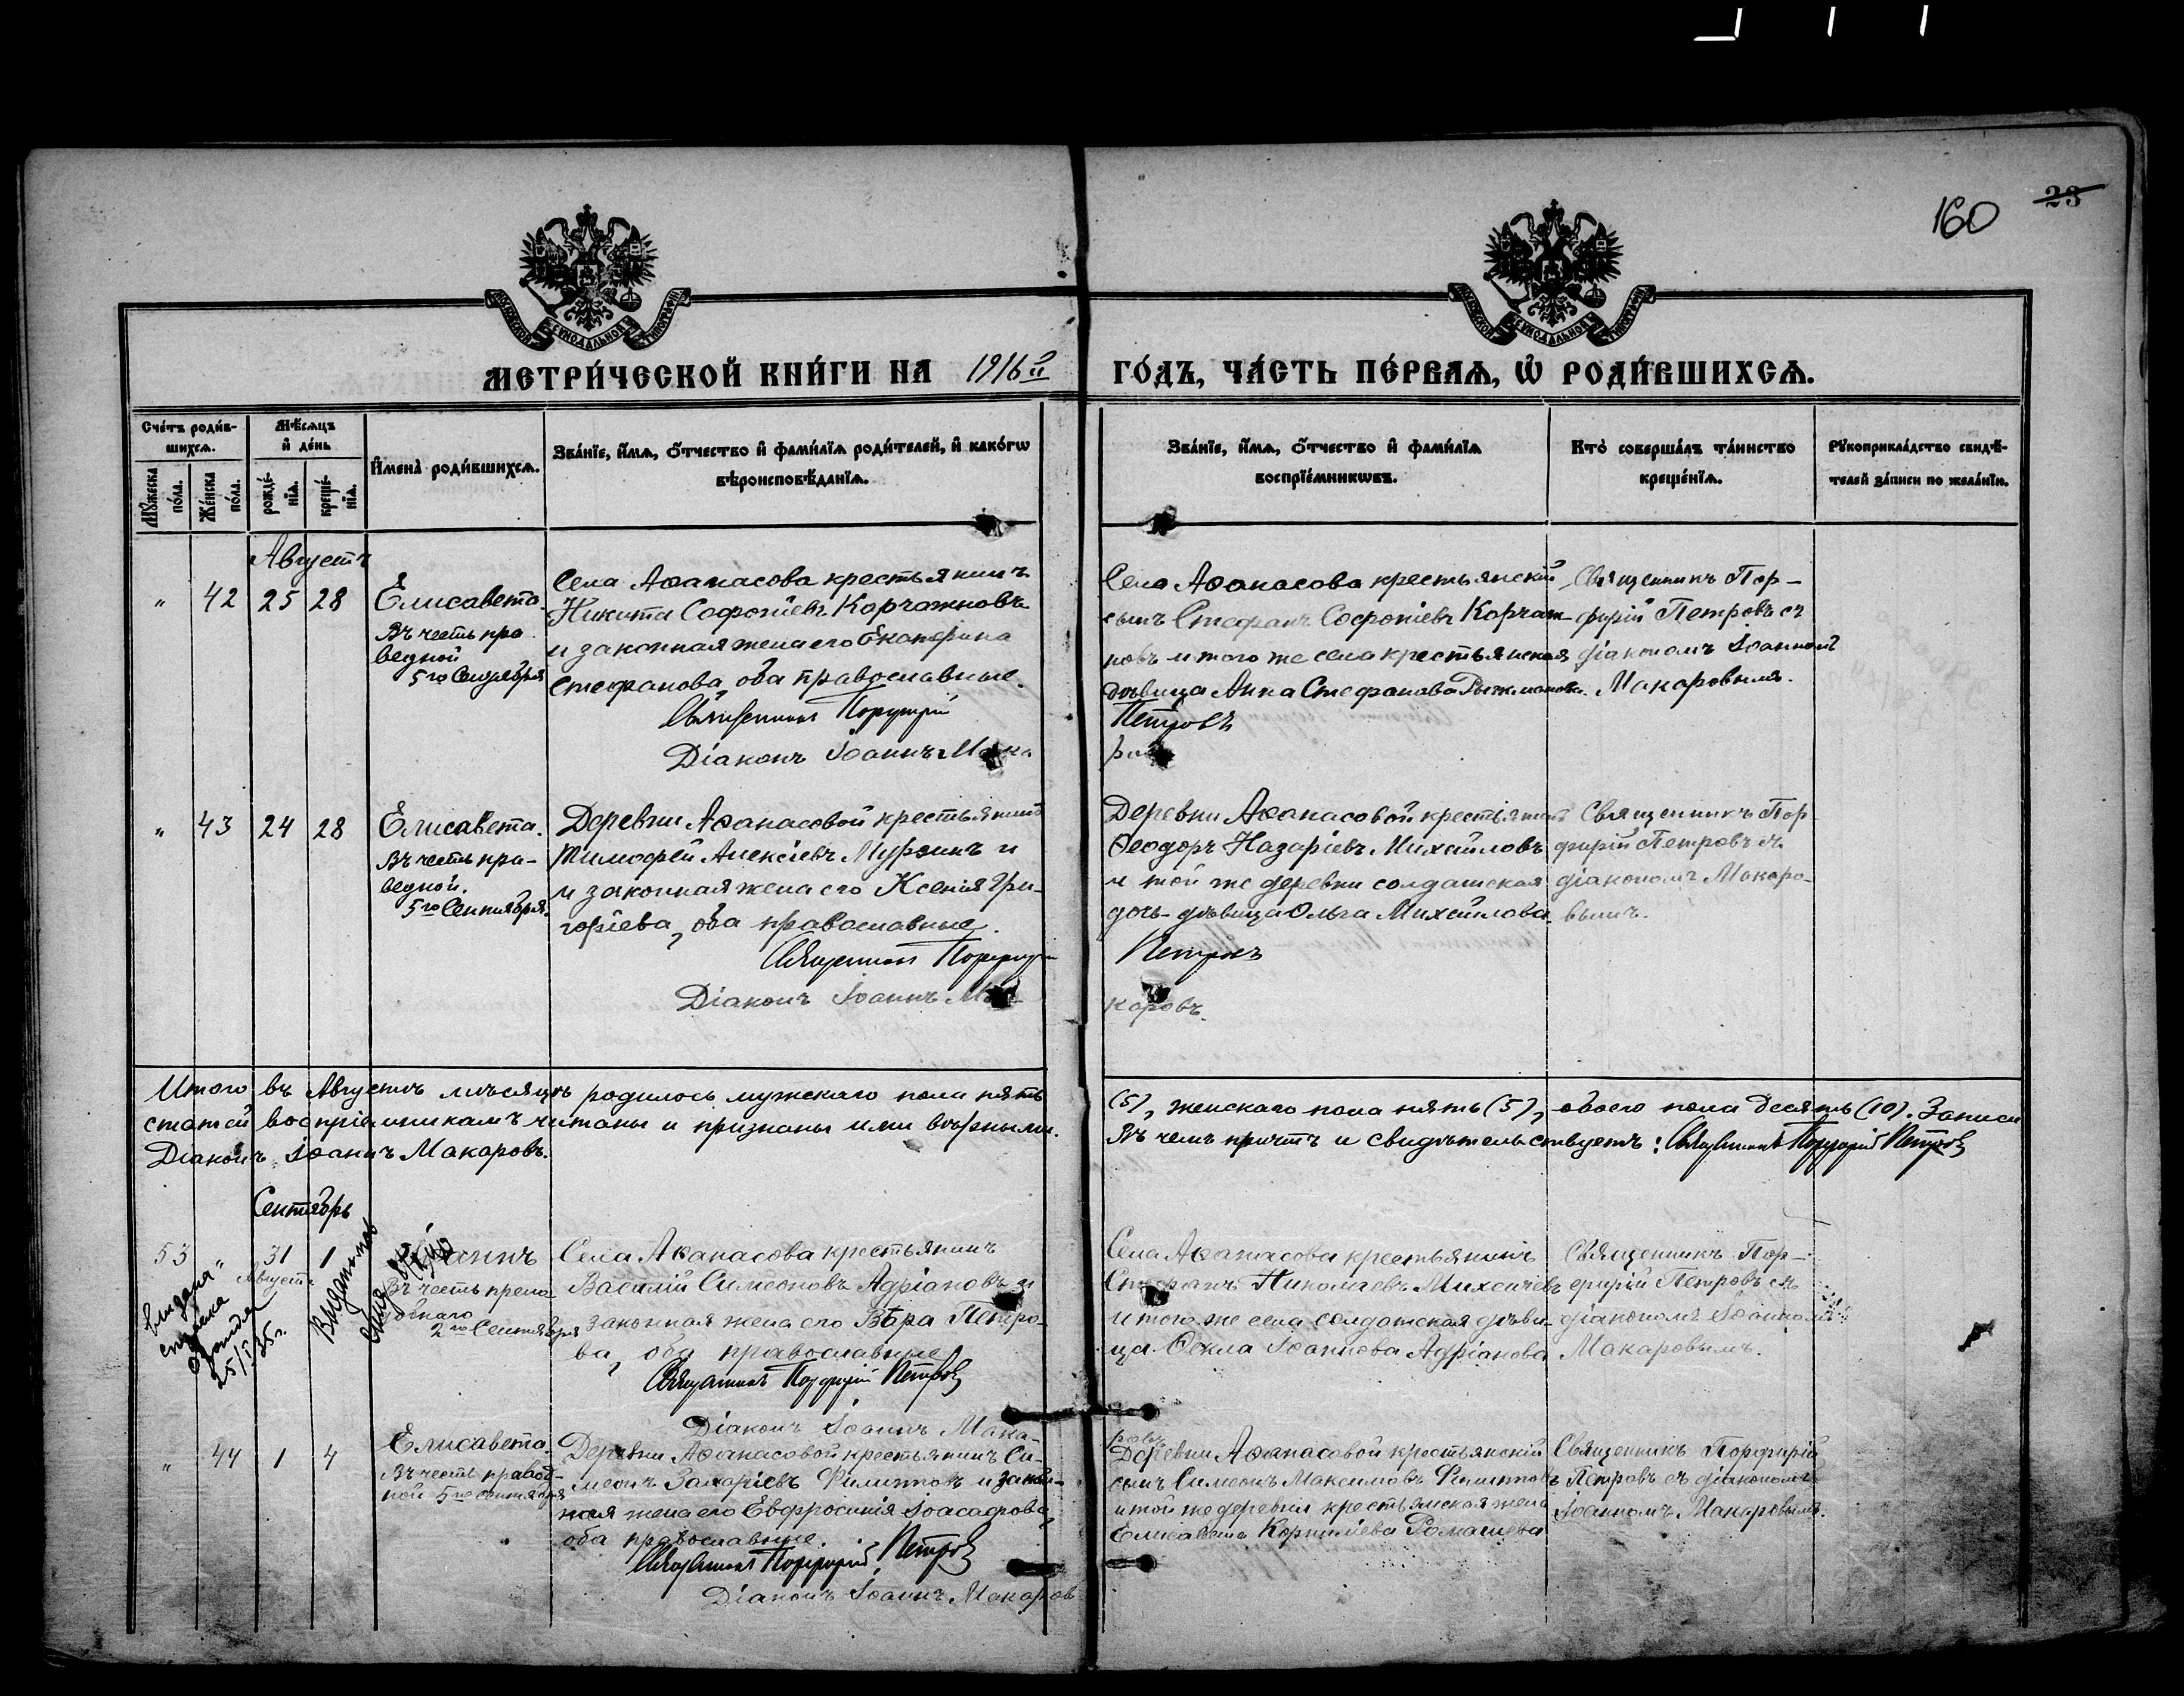 160 23
МЕТРИ́ЧЕСКОЙ КНИ́ГИ НА 1916й ГО́ДЪ, ЧА́СТЬ ПЕ́РВАѦ, Ѡ҆ РОДИ́ВШИХСѦ.
Сче́тъ роди́в-
шихсѧ.
Мѣ́сѧцъ
и҆ де́нь
Мꙋ́жеска по́ла.
Же́нска по́ла.
рожде́-
нїѧ.
креще́-
нїѧ.
И҆мена̀ роди́вшихсѧ.
Зва́нїе, и҆́мѧ, ѻ҆́тчество и҆ фами́лїѧ роди́телей, и҆ како́гѡ
вѣроисповѣ́данїѧ.
Зва́нїе, и҆́мѧ, ѻ҆́тчество и҆ фами́лїѧ
воспрїе́мникѡвъ.
Кто̀ соверша́лъ та́инство
креще́нїѧ.
Рꙋкоприкла́дство свидѣ́-
телей за́писи по жела́нїю.
Августъ
" 42 25 28
Елисавета.
Въ честь пра-
ведной
5го Сентября
Села Аѳанасова крестьянинъ
Никита Софроніевъ Корчажновъ
и законная жена его Екатерина
Стефанова, оба православные.
Священникъ Порфирій
Діаконъ Іоаннъ Мака
Села Аѳанасова крестьянскій
сынъ Стефанъ Софроніевъ Корчаж-
новъ и того же села крестьянская
дѣвица Анна Стефанова
Петровъ
ровъ
Священникъ Пор-
фирій Петровъ съ
діакономъ Іоанномъ
Макаровымъ.
" 43 24 28
Елисавета.
Въ честь пра-
ведной.
5го Сентября.
Деревни Аѳанасовой крестьянинъ
Тимофей Алексіевъ Мурзинъ и
и законная жена его Ксенія Гри-
горіева, оба православные.
Священникъ Порфирій
Діаконъ Іоаннъ Ма-
Деревни Аѳанасовой крестьянинъ
Ѳеодоръ Назаріевъ Михайловъ
и той же деревни солдатская
дочь-дѣвица Ольга Михайлова.
Петровъ
каровъ.
Священникъ Пор
фирій Петровъ съ
діакономъ Макаро-
вымъ.
Итого въ Августѣ мѣсяцѣ родилось мужескаго пола пять (5), женскаго пола пять (5), обоего пола десять (10). Записи
статей воспріемникамъ читаны и признаны ими вѣрными. Въ чемъ причтъ и свидѣтельствуетъ: Священникъ Порфирій Петровъ
Діаконъ Іоаннъ Макаровъ.
Сентябрь
53 " 31 1
Августа
Іоаннъ
Въ честь препо
добнаго
2го Сентября
Выдана
справка
25/I 35 г.
Села Аѳанасова крестьянинъ
Василій Симеоновъ Адріановъ и
законная жена его Вѣра Петро-
ва, оба православные
Священникъ Порфирій Петровъ
Діаконъ Іоаннъ Мака-
Села Аѳанасова крестьянинъ
Стефанъ Николаевъ
и того же села солдатская дѣви-
ца Ѳекла Іоаннова Адріанова
ровъ
Священникъ Пор-
фирій Петровъ съ
діакономъ Іоанномъ
Макаровымъ.
" 44 1 4
Елисавета.
Въ честь правед-
ной 5го Сентября
Деревни Аѳанасовой крестьянинъ Си-
меонъ Захаріевъ Филиповъ и закон-
ная жена его Евфросинія Іоасафова,
оба православные.
Священникъ Порфирій Петровъ
Діаконъ Іоаннъ Макаров
Деревни Аѳанасовой крестьянскій
сынъ Симеонъ Максимовъ Филиповъ
и той же деревни крестьянская жена
Елисавета Корниліева Ромашева
Священникъ Порфирій
Петровъ съ діакономъ
Іоанномъ Макаровымъ.